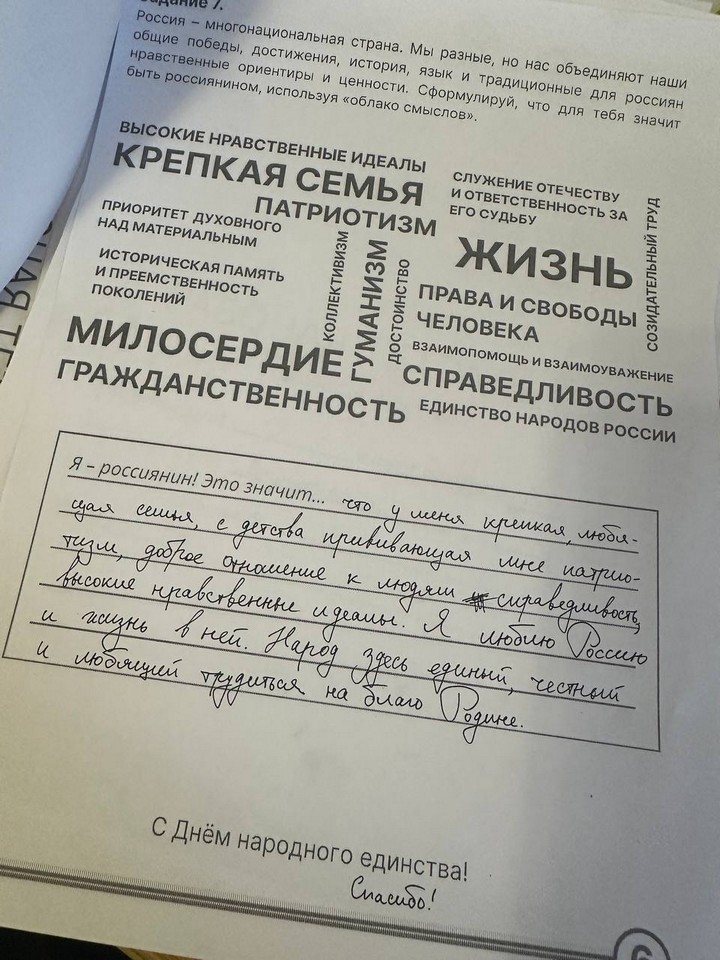 Задание 7.
Россия – многонациональная страна. Мы разные, но нас объединяют наши
общие победы, достижения, история, язык и традиционные для россиян
нравственные ориентиры и ценности. Сформулируй, что для тебя значит
быть россиянином, используя «облако смыслов».
ВЫСОКИЕ НРАВСТВЕННЫЕ ИДЕАЛЫ
КРЕПКАЯ СЕМЬЯ
ПАТРИОТИЗМ
СЛУЖЕНИЕ ОТЕЧЕСТВУ
И ОТВЕТСТВЕННОСТЬ ЗА
ЕГО СУДЬБУ
ПРИОРИТЕТ ДУХОВНОГО
НАД МАТЕРИАЛЬНЫМ
ИСТОРИЧЕСКАЯ ПАМЯТЬ
И ПРЕЕМСТВЕННОСТЬ
ПОКОЛЕНИЙ
КОЛЛЕКТИВИЗМ
ГУМАНИЗМ
ДОСТОИНСТВО
ЖИЗНЬ
СОЗИДАТЕЛЬНЫЙ ТРУД
ПРАВА И СВОБОДЫ
ЧЕЛОВЕКА
ВЗАИМОПОМОЩЬ И ВЗАИМОУВАЖЕНИЕ
МИЛОСЕРДИЕ
СПРАВЕДЛИВОСТЬ
ГРАЖДАНСТВЕННОСТЬ
ЕДИНСТВО НАРОДОВ РОССИИ
Я – россиянин! Это значит... что у меня крепкая, любя-
щая семья, с детства прививающая мне патрио-
тизм, доброе отношение к людям справедливость,
высокие нравственные идеалы. Я люблю Россию
и жизнь в ней. Народ здесь единый, честный
и любящий трудиться на благо Родине.
С Днём народного единства!
Спасибо!
6